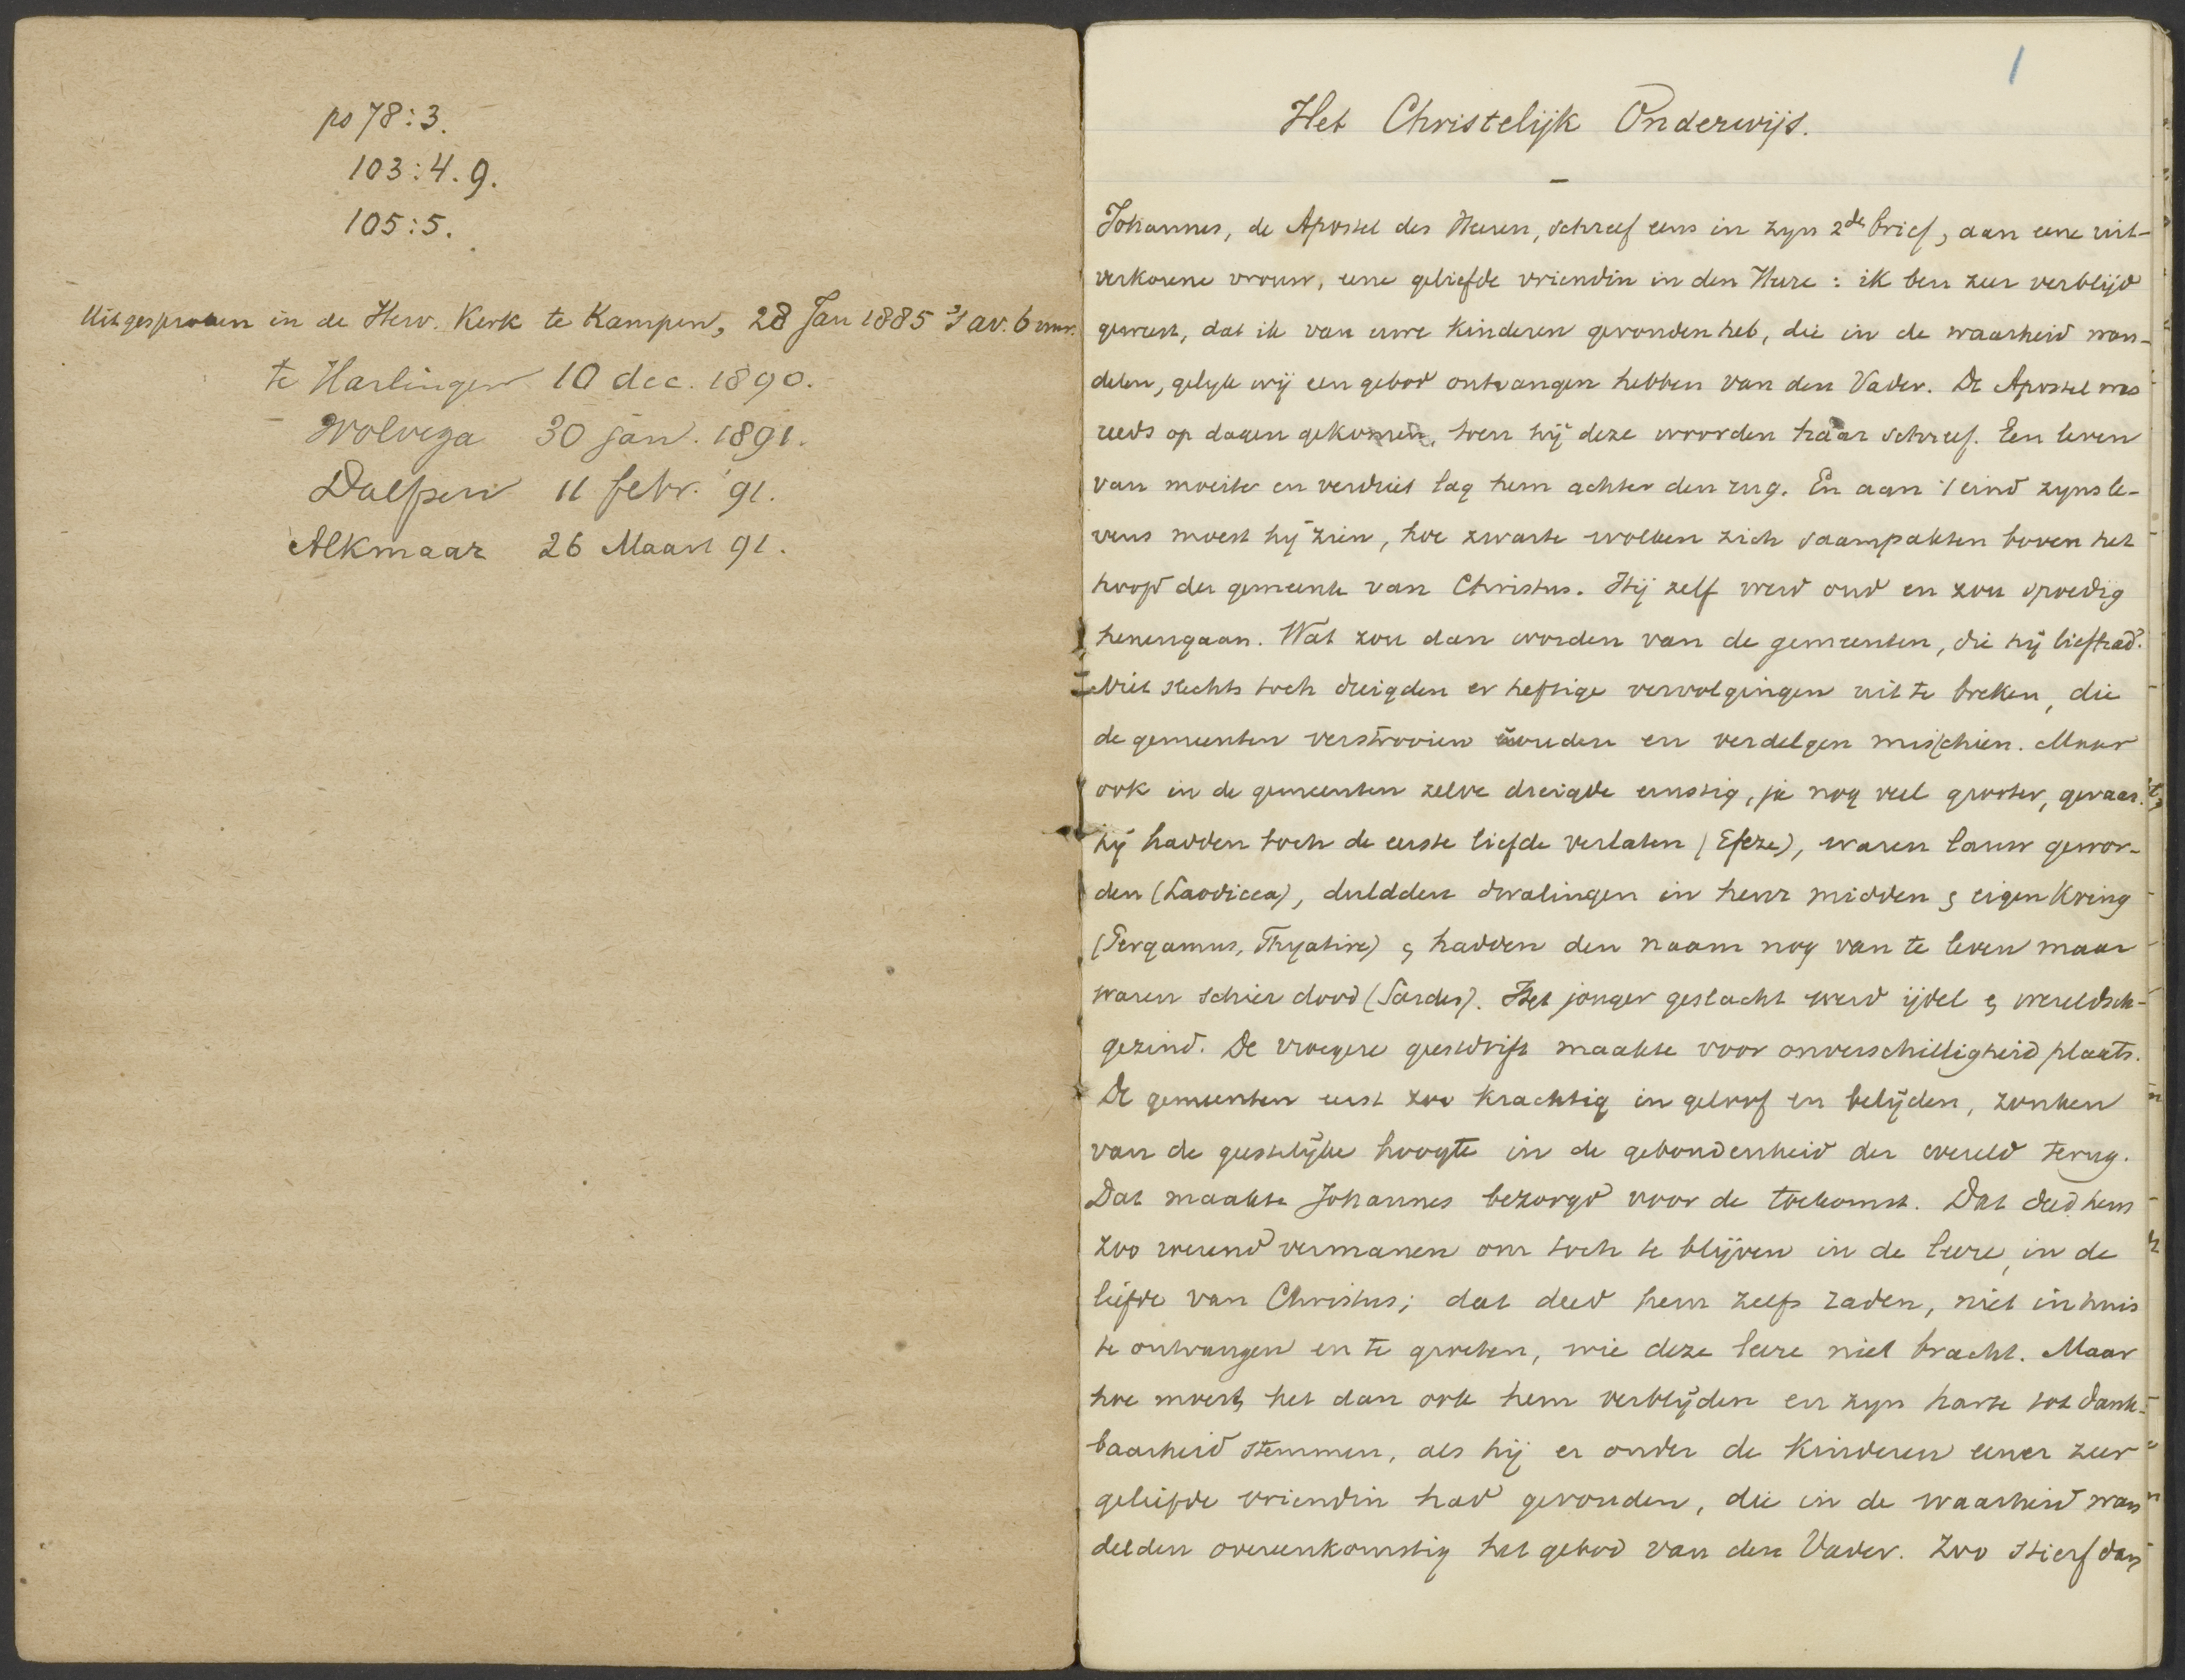 ps 78:3.
103:4.9.
105:5.
Uitgesproken in de Herv. Kerk te Kampen, 28 Jan 1885 's av. 6 uur.
te Harlingen 10 dec. 1890.
Wolvega 30 jan. 1891.
Dalfsen 11 febr. '91.
Alkmaar 26 Maart 91.
1
Het Christelijk Onderwijs.
Johannes, de Apostel des Heeren, schreef eens in zijn 2de brief, aan eene uit-
verkorene vrouw, eene geliefde vriendin in den Heere: ik ben zeer verblijd
geweest, dat ik van uwe kinderen gevonden heb, die in de waarheid wan-
delen, gelijk wij een gebod ontvangen hebben van den Vader. De Apostel was
reeds op dagen gekomen, toen hij deze woorden haar schreef. Een leven
van moeite en verdriet lag hem achter den rug. En aan 't eind zijns le-
vens moest hij zien, hoe zwarte wolken zich saampakten boven het
hoofd der gemeente van Christus. Hij zelf werd oud en zou spoedig
henengaan. Wat zou dan worden van de gemeenten, die hij liefhad?
Niet slechts toch dreigden er heftige vervolgingen uit te breken, die
de gemeenten verstrooien zouden en verdelgen misschien. Maar
ook in de gemeenten zelve dreigde ernstig, ja nog veel grooter, gevaar.
zij hadden toch de eerste liefde verlaten (Efeze), waren lauw gewor-
den (Laodicea), duldden dwalingen in heur midden & eigen kring
(Pergamus, Thyatire) & hadden den naam nog van te leven maar
waren schier dood (Sardes). Het jonger geslacht werd ijdel & wereldsch-
gezind. De vroegere geestdrift maakte voor onverschilligheid plaats.
De gemeenten eerst zoo krachtig in geloof en belijden, zonken
van de geestelijke hoogte in de gebondenheid der wereld terug.
Dat maakte Johannes bezorgd voor de toekomst. Dat deed hem
zoo roerend vermanen om toch te blijven in de leere, in de
liefde van Christus; dat deed hem zelfs raden, niet in huis
te ontvangen en te groeten, wie deze leere niet bracht. Maar
hoe moest het dan ook hem verblijden en zijn harte tot dank-
baarheid stemmen, als hij er onder de kinderen eener zeer
geliefde vriendin had gevonden, die in de waarheid wan
delden overeenkomstig het gebod van den Vader. Zoo stierf dan